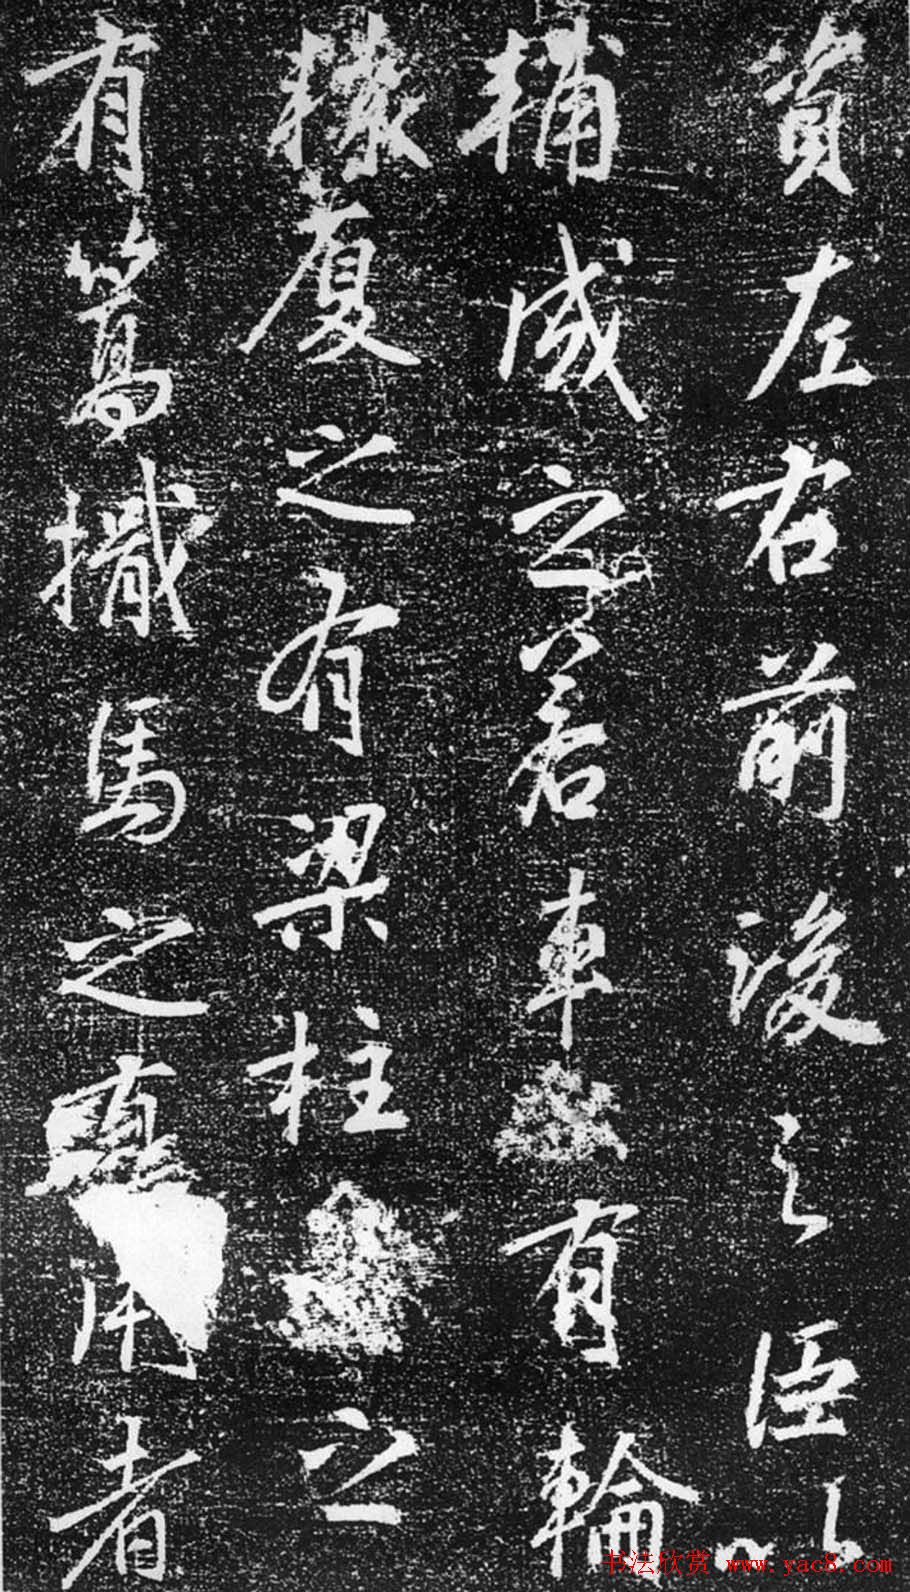 資左右前後之臣以
輔成之若車有輪
轅厦之有梁柱之
有篙檝馬之用者
书法欣赏 www.yac8.com